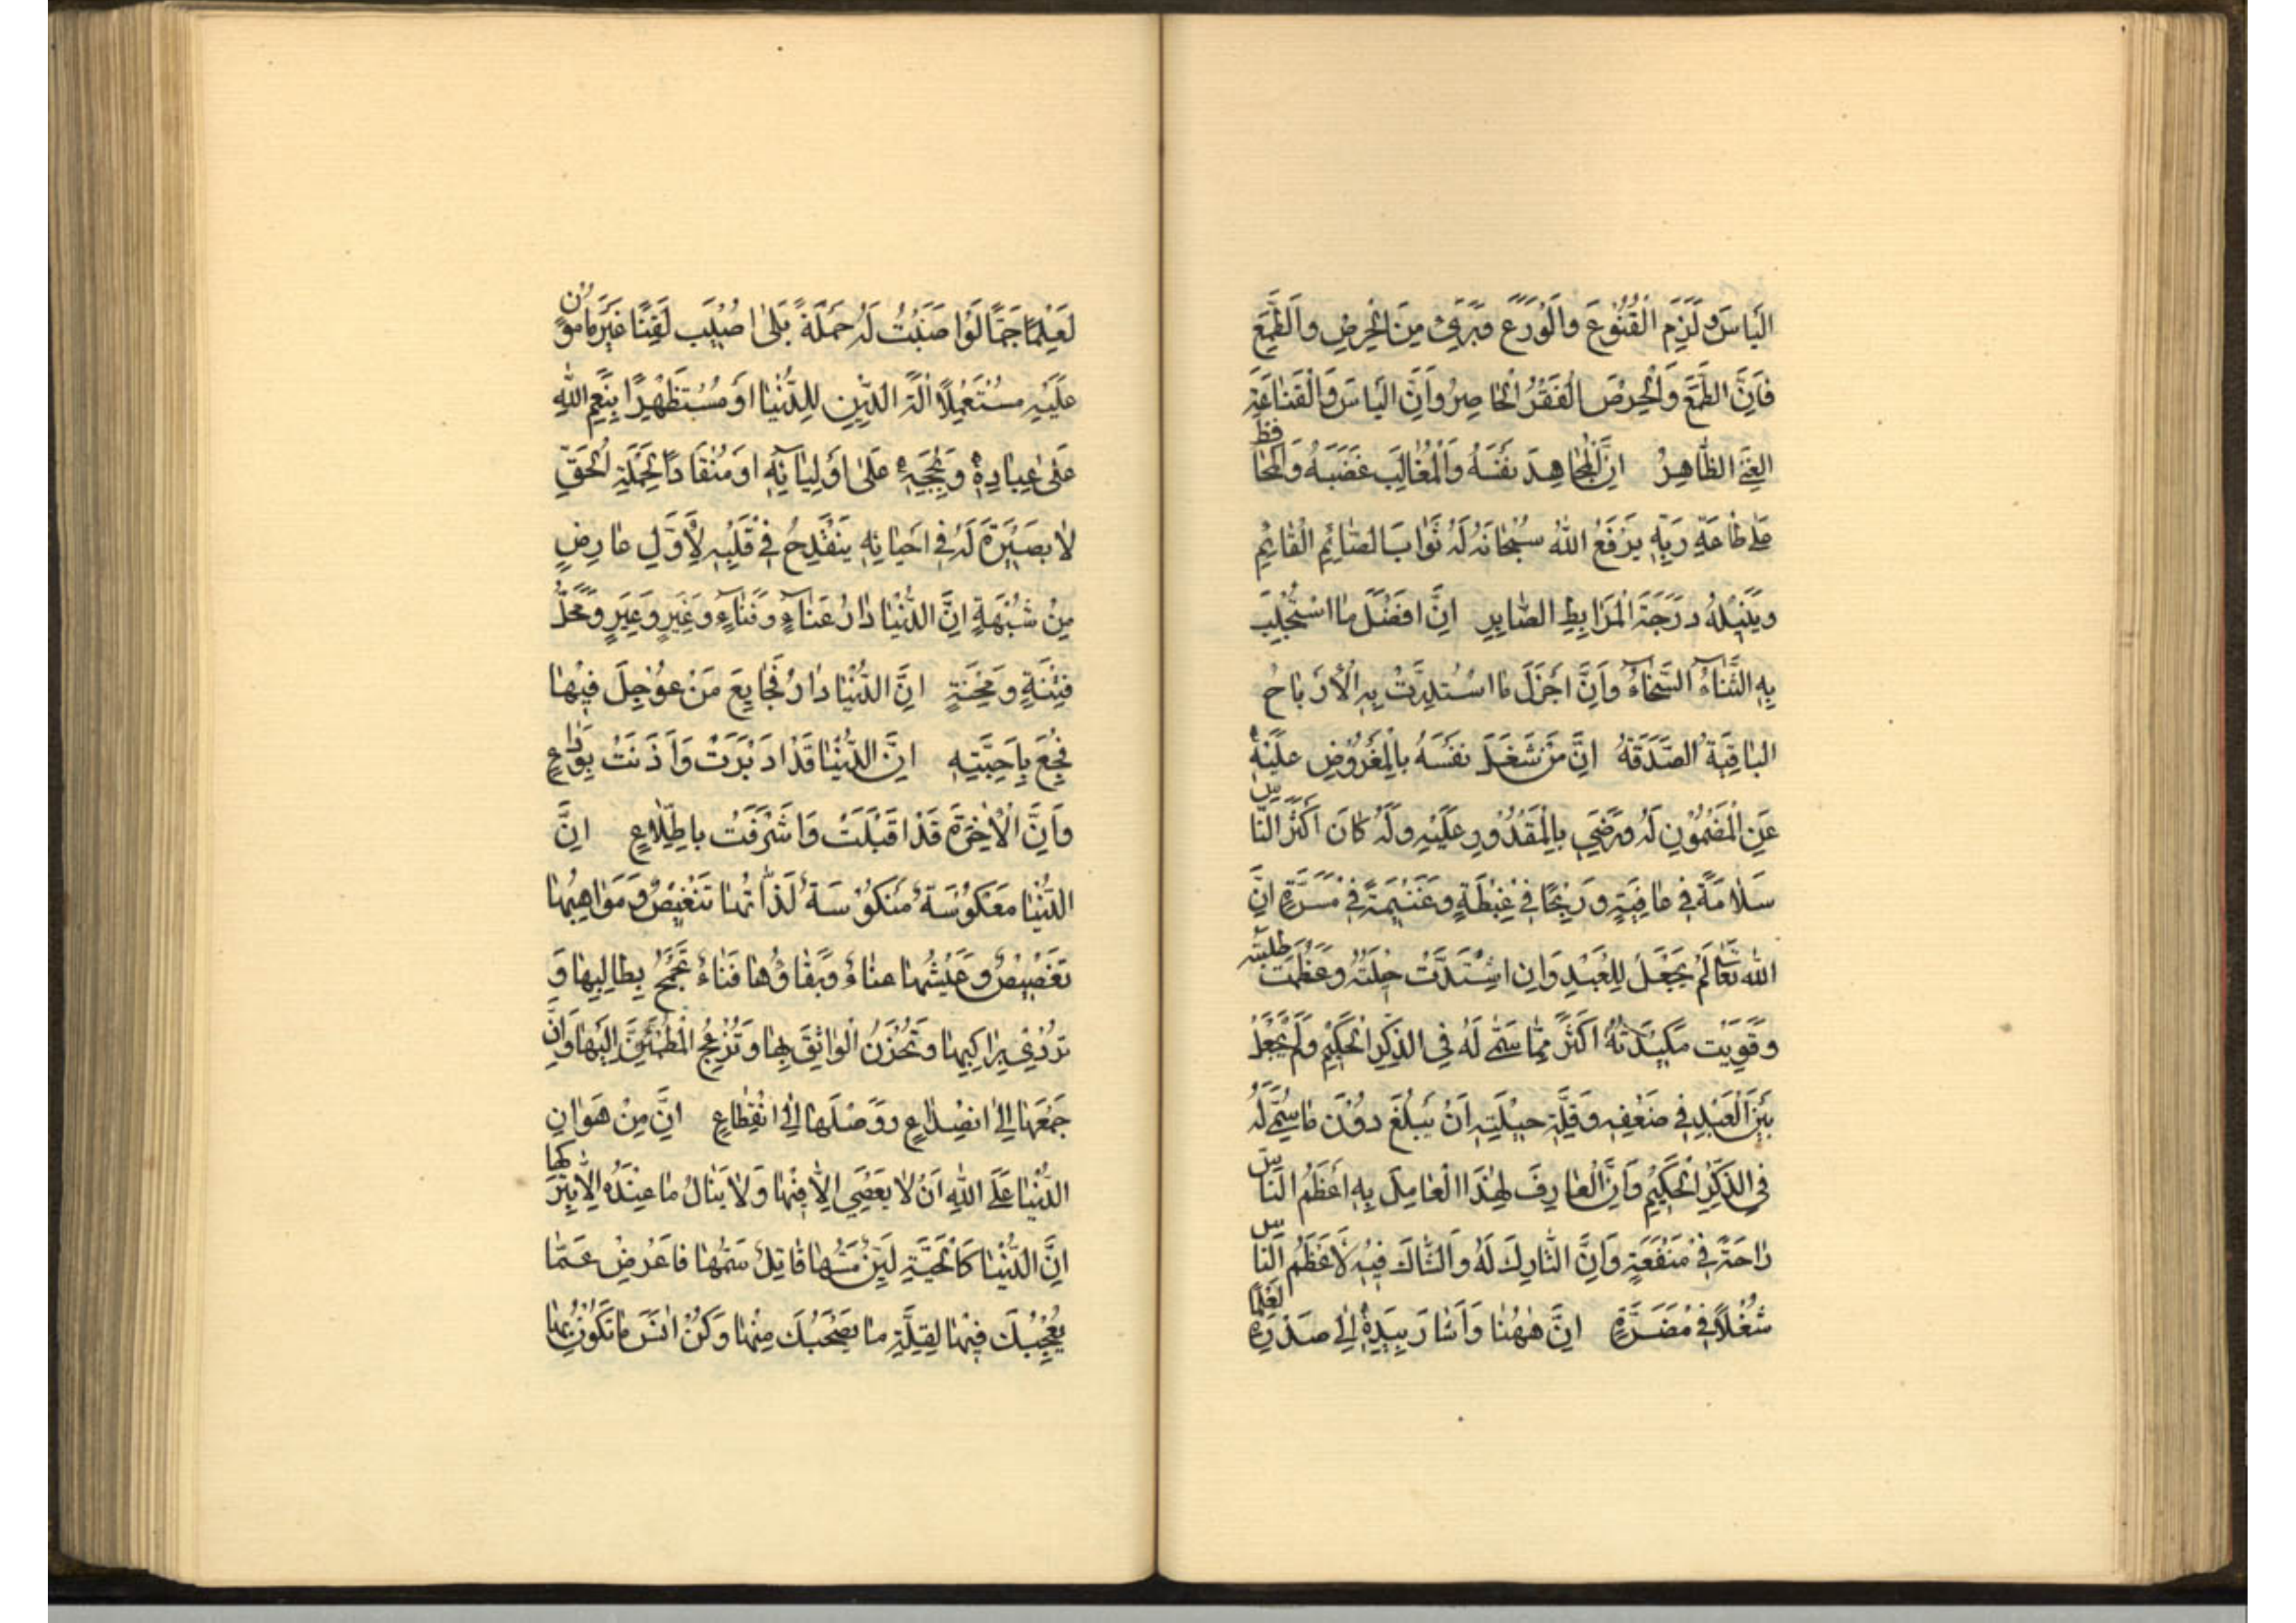 الْيَاسَ وَلَزِمَ الْقُنُوعَ وَالْوَرَعَ وَبَرِئَ مِنَ الْحِرْصِ وَالطَّمَعِ
فَاِنَّ الطَّمَعَ وَالْحِرْصَ الْفَقْرُ الْحَاضِرُ وَاِنَّ الْيَاسَ وَالْقَنَاعَةَ
الْغِنَى الظَّاهِرُ اِنَّ الْمُجَاهِدَ نَفْسَهُ وَالْمُغَالِبَ غَضَبَهُ وَالْمُحَافِظَ
عَلَى طَاعَةِ رَبِّهِ يَرْفَعُ اللهُ سُبْحَانَهُ لَهُ ثَوَابَ الصَّائِمِ الْقَائِمِ
وَيُنِيلُهُ دَرَجَةَ الْمُرَابِطِ الصَّابِرِ اِنَّ اَفْضَلَ مَا اسْتُجْلِبَ
بِهِ الثَّنَاءُ السَّخَاءُ وَاَنَّ اَجْزَلَ مَا اسْتُدِرَّتْ بِهِ الْاَرْبَاحُ
الْبَاقِيَةُ الصَّدَقَةُ اِنَّ مَنْ شَغَلَ نَفْسَهُ بِالْمَفْرُوضِ عَلَيْهِ
عَنِ الْمَضْمُونِ لَهُ وَرَضِيَ بِالْمَقْدُورِ عَلَيْهِ وَلَهُ كَانَ اَكْثَرَ النَّاسِ
سَلَامَةً فِي عَافِيَةٍ وَرِبْحًا فِي غِبْطَةٍ وَغَنِيمَةً فِي مَسَرَّةٍ اِنَّ
اللهَ تَعَالَى لَمْ يَجْعَلْ لِلْعَبْدِ وَاِنِ اشْتَدَّتْ حِيلَتُهُ وَعَظُمَتْ طَلِبَتُهُ
وَقَوِيَتْ مَكِيدَتُهُ اَكْثَرَ مِمَّا سَمَّى لَهُ فِي الذِّكْرِ الْحَكِيمِ وَلَمْ يَحُلْ
بَيْنَ الْعَبْدِ فِي ضَعْفِهِ وَقِلَّةِ حِيلَتِهِ اَنْ يَبْلُغَ دُونَ مَا سُمِّيَ لَهُ
فِي الذِّكْرِ الْحَكِيمِ وَاِنَّ الْعَارِفَ لِهٰذَا الْعَامِلَ بِهِ اَعْظَمُ النَّاسِ
رَاحَةً فِي مَنْفَعَةٍ وَاِنَّ التَّارِكَ لَهُ وَالشَّاكَّ فِيهِ لَاَعْظَمُ النَّاسِ
شُغْلًا فِي مَضَرَّةٍ اِنَّ هٰهُنَا وَاَشَارَ بِيَدِهِ اِلَى صَدْرِهِ لَعِلْمًا
لَعِلْمًا جَمًّا لَوْ اَصَبْتُ لَهُ حَمَلَةً بَلَى اُصِيبُ لَقِنًا غَيْرَ مَامُونٍ
عَلَيْهِ مُسْتَعْمِلًا اٰلَةَ الدِّينِ لِلدُّنْيَا اَوْ مُسْتَظْهِرًا بِنِعَمِ اللهِ
عَلَى عِبَادِهِ وَبِحُجَجِهِ عَلَى اَوْلِيَائِهِ اَوْ مُنْقَادًا لِحَمَلَةِ الْحَقِّ
لَا بَصِيرَةَ لَهُ فِي اَحْيَانِهِ يَنْقَدِحُ فِي قَلْبِهِ لِاَوَّلِ عَارِضٍ
مِنْ شُبْهَةٍ اِنَّ الدُّنْيَا دَارُ عَنَاءٍ وَفَنَاءٍ وَغِيَرٍ وَعِبَرٍ وَمَحَلُّ
فِتْنَةٍ وَمِحْنَةٍ اِنَّ الدُّنْيَا دَارُ فَجَايِعَ مَنْ عُوجِلَ فِيهَا
فُجِعَ بِاَحِبَّتِهِ اِنَّ الدُّنْيَا قَدْ اَدْبَرَتْ وَاٰذَنَتْ بِوَدَاعٍ
وَاِنَّ الْاٰخِرَةَ قَدْ اَقْبَلَتْ وَاَشْرَفَتْ بِاطِّلَاعٍ اِنَّ
الدُّنْيَا مَعْكُوسَةٌ مَنْكُوسَةٌ لَذَّاتُهَا تَنْغِيصٌ وَمَوَاهِبُهَا
تَغْصِيصٌ وَعَيْشُهَا عَنَاءٌ وَبَقَاؤُهَا فَنَاءٌ تَجْمَحُ بِطَالِبِهَا وَ
تُرْدِي بِرَاكِبِهَا وَتَحْزُنُ الْوَاثِقَ بِهَا وَتُزْعِجُ الْمُطْمَئِنَّ اِلَيْهَا وَاِنَّ
جَمْعَهَا اِلَى انْصِدَاعٍ وَوَصْلَهَا اِلَى انْقِطَاعٍ اِنَّ مِنْ هَوَانِ
الدُّنْيَا عَلَى اللهِ اَنْ لَا يُعْصَى اِلَّا فِيهَا وَلَا يُنَالُ مَا عِنْدَهُ اِلَّا بِتَرْكِهَا
اِنَّ الدُّنْيَا كَالْحَيَّةِ لَيِّنٌ مَسُّهَا قَاتِلٌ سَمُّهَا فَاَعْرِضْ عَمَّا
يُعْجِبُكَ فِيهَا لِقِلَّةِ مَا يَصْحَبُكَ مِنْهَا وَكُنْ اٰنَسَ مَا تَكُونُ بِهَا